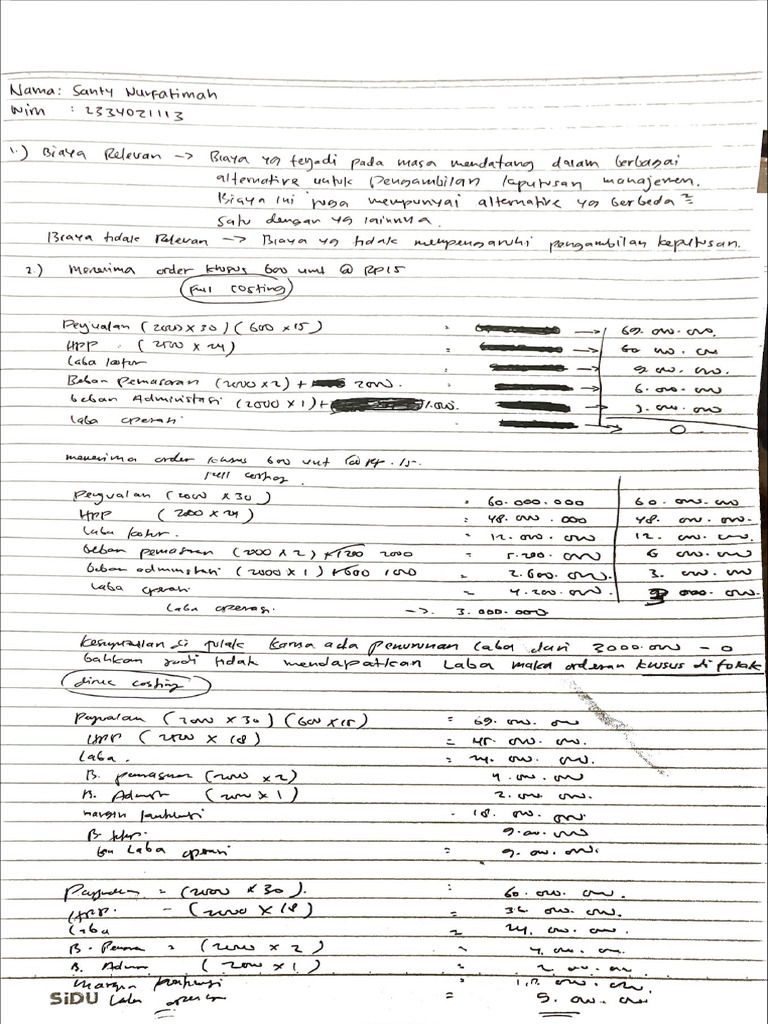 Nama: Santy Nurfatimah
Nim : 2334021113
1.) Biaya Relevan -> Biaya yg terjadi pada masa mendatang dalam berbagai
alternative untuk pengambilan keputusan manajemen.
Biaya ini juga mempunyai alternative yg berbeda²
satu dengan yg lainnya.
Biaya tidak Relevan -> Biaya yg tidak mempengaruhi pengambilan keputusan.
2.) Menerima order khusus 600 unit @ RP15
Full costing
Penjualan (2000 x 30) (600 x 15) : -> 69.000.000.
HPP (2500 x 24) = -> 60 000.000
Laba kotor -> 9.000.000.
Beban Pemasaran (2000 x 2) + 2000. : -> 6.000.000
beban Administrasi (2000 x 1) + 1.000. -> 3.000.000
laba operasi -> 0
menerima order khusus 600 unit @ 15.
full costing
Penjualan (2000 x 30) = 60.000.000 60.000.000
HPP (2000 x 24) = 48.000.000 48.000.000.
Laba kotor. = 12.000.000 12.000.000.
beban pemasaran (2000 x 2) + 1200 2000 = 5.200.000 6 000.000
beban administrasi (2000 x 1) + 600 1000 = 2.600.000. 3.000.000
Laba operasi = 4.200.000 3 000.000.
Laba operasi -> 3.000.000
Kesimpulan di tolak karna ada penurunan laba dari 3000.000 - 0
bahkan jadi tidak mendapatkan Laba maka orderan khusus di tolak
direc costing
Penjualan (2000 x 30) (600 x 15) = 69.000.000
HPP (2500 x 18) = 45.000.000.
Laba. = 24.000.000.
B. pemasaran (2000 x 2) 4.000.000
B. Admin (2000 x 1) 2.000.000.
margin kontribusi 18.000.000.
B. tetap. 9.000.000
Laba operasi = 9.000.000.
Penjualan = (2000 x 30). : 60.000.000.
HPP. - (2000 x 18) = 36.000.000.
Laba = 24.000.000.
B. Pemasa = (2000 x 2) = 4.000.000.
B. Admin (2000 x 1) = 2.000.000.
Margin kontribusi = 000.000
SiDU Laba operasi = 9.000.000